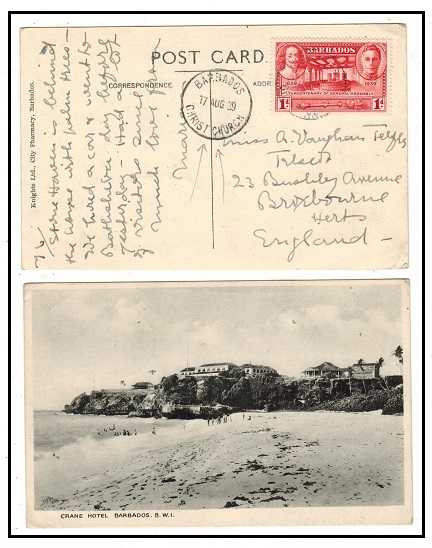 POST CARD
CORRESPONDENCE
ADDR
Knights Ltd., City Pharmacy, Barbados.
BARBADOS
17 AUG 39
CHRIST CHURCH
BARBADOS
1639 1939
TERCENTENARY OF GENERAL ASSEMBLY
1d 1d
Stone Haven is behind
the house with palm trees -
We hired a car & went to
Bathsheba day before
yesterday - Had a lot
of visitors since
much love from
Miss A. Vaughan
23 Bushley Avenue
Broxbourne
Herts
England -
CRANE HOTEL BARBADOS. B.W.I.